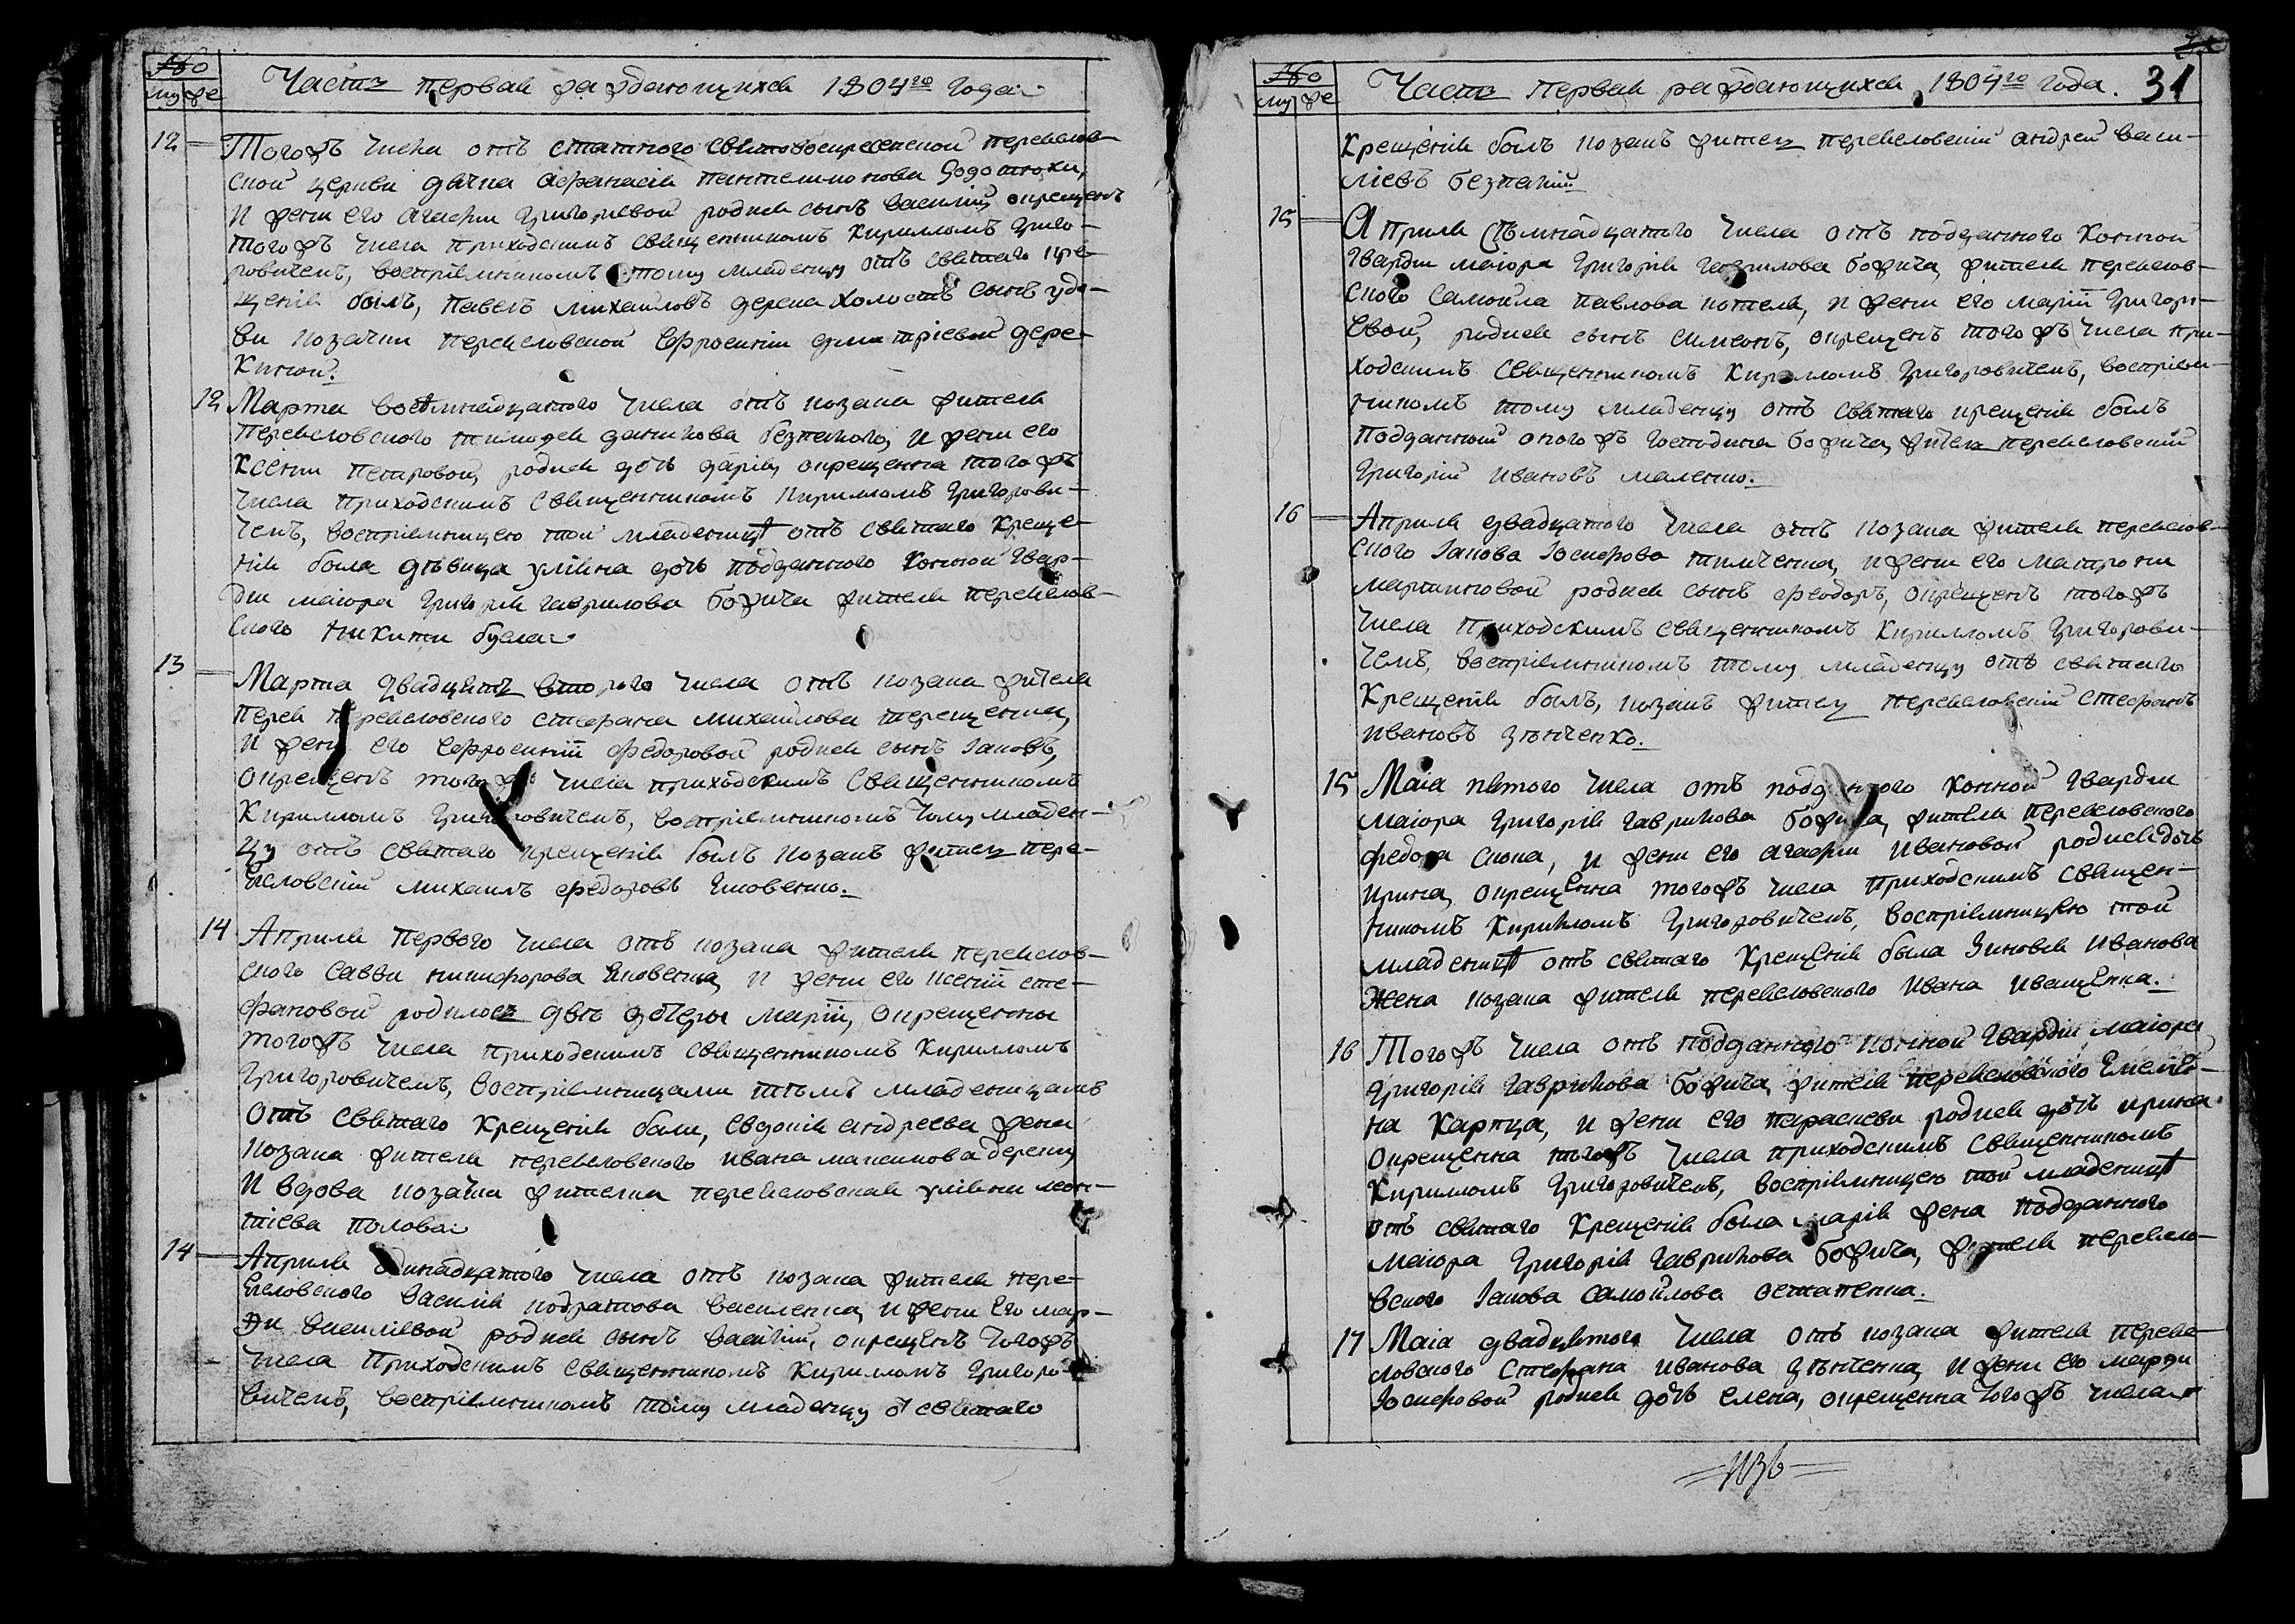 Част первая раждающихся 1804го года
му фе
12
Тогожъ числа отъ статного святовоскресенской переяслов-
ской церкви дячка Афанасія пантелимонова
и жени его агафіи григориевой родися сынъ василий, окрещенъ
тогожъ числа приходскимъ священникомъ Кириломъ григо-
ровичемъ, воспріемникомъ тому младенцу отъ святаго кре-
щенія былъ, павелъ михаиловъ дерека холостъ сынъ удо-
ви козачки переясловской Ефросиніи димитріевой дере-
киной.
12 Марта восѣмнадцатого числа отъ козака жителя
переясловского тимофея данилова безпалого, и жени его
Ксеніи петровой, родися дочь дарія, окрещенна тогожъ
числа приходскимъ священникомъ кириломъ григорови-
чемъ, воспріемницею той младеницѣ отъ святаго креще-
нія была дѣвица улияна дочьподданного конной гвар-
діи маіора григорія гаврилова божича жителя переяслов-
ского никити буела
13
Марта двадцять второго числа отъ козака жителя
перея переясловского стефана михайлова терещенка,
и жени его ефросиніи федоровой родися сынъ Іаковъ,
окрещенъ тогожъ числа приходскимъ священникомъ
Кириломъ григоровичемъ, воспріемникомъ тому младен-
цу отъ святаго крещенія былъ козакъ житель пере-
ясловскій михаилъ федоровъ Яковенко.
14 Апріля первого числа отъ козака жителя переяслов-
ского савви никифорова Яковенка, и жени его ксеніи сте-
фановой родилось двѣ дочеры маріи, окрещенны
тогожъ числа приходскимъ священникомъ кириломъ
григоровичемъ, воспріемницами тѣмъ младеницамъ
отъ святаго крещенія били, евдокія андреева жена
козака жителя переясловского ивана максимова дереки,
и вдова козачка жителка переясловская улияни леон-
тіева полова
14
Апріля единадцатого числа отъ козака жителя пере-
ясловского василія кодратова василенка, и жени его мар-
ѳи василіевой родися сынъ василій, окрещенъ тогожъ
числа приходскимъ священникомъ кириломъ григоро-
вичемъ, воспріемникомъ тому младенцу от святаго
Част первая раждающихся 1804го года. 31
му фе
крещенія былъ козакъ житель переясловскій андрей васи-
ліевъ безпалій
15
Апріля сѣмнадцатого числа отъ подданного конной
гвардіи маіора григорія гаврилова божича, жителя переяслов-
ского самоила павлова котеля, и жени его маріи григорі-
евой, родися сынъ симеонъ, окрещенъ тогожъ числа при-
ходскимъ священникомъ кириломъ григоровичемъ, воспріем-
никомъ тому младенцу отъ святаго крещенія былъ
подданный оногожъ господина божича, житель переясловскій
григорій ивановъ маленко.
16
Апріля двадцатого числа отъ козака жителя переяслов-
ского Іакова Іосифова тимченка, и жени его матрони
мартиновой родися сынъ феодоръ, окрещенъ тогожъ
числа приходскимъ священникомъ кириломъ григорови-
чемъ, воспріемникомъ тому младенцу отъ святаго
крещенія былъ, козакъ житель переясловскій стефанъ
ивановъ зѣнченко.
15 Маіа пятого числа отъ подданного конной гвардіи
маіора григорія гаврилова божича, жителя переясловского
федора скока, и жени его агафіи ивановой родися дочь
ирина, окрещенна тогожъ числа приходскимъ священ-
никомъ Кириломъ григоровичемъ, воспріемницею той
младеницѣ отъ святаго крещенія была зиновія иванова
жена козака жителя переясловского ивана иващенка.
16 Тогожъ числа отъ подданного конной гвардіи маіора
григорія гаврилова божича жителя переясловского Емелія-
на Карпца, и жени его параскеви родися дочь ирина
окрещенна тогожъ числа приходскимъ священникомъ
Кириломъ григоровичемъ, воспріемницею той младеницѣ
отъ святаго крещенія была марія жена подданного
маіора григорія гаврилова божича, жителя переясло-
вского Іакова самойлова остапенка.
17 Маіа двадцятого числа отъ козака жителя перея-
словского стефана иванова зѣнченка, и жени его марѳи
Іосифовой родися дочь елена, окрещенна тогожъ числа